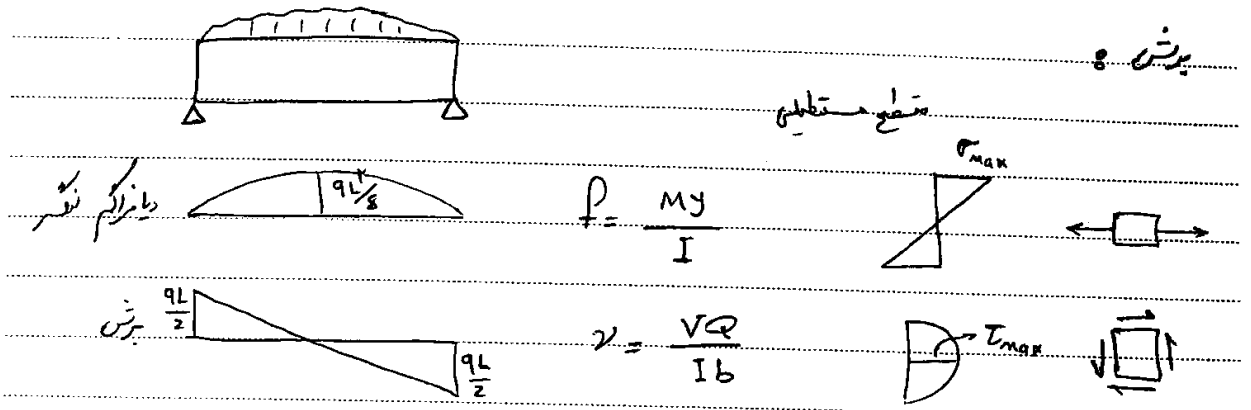 برش :
مقطع مستطیلی
σmax
دیافراگم لنگر qL²/8 f = My/I
برش qL/2 qL/2 ν = VQ/Ib τmax